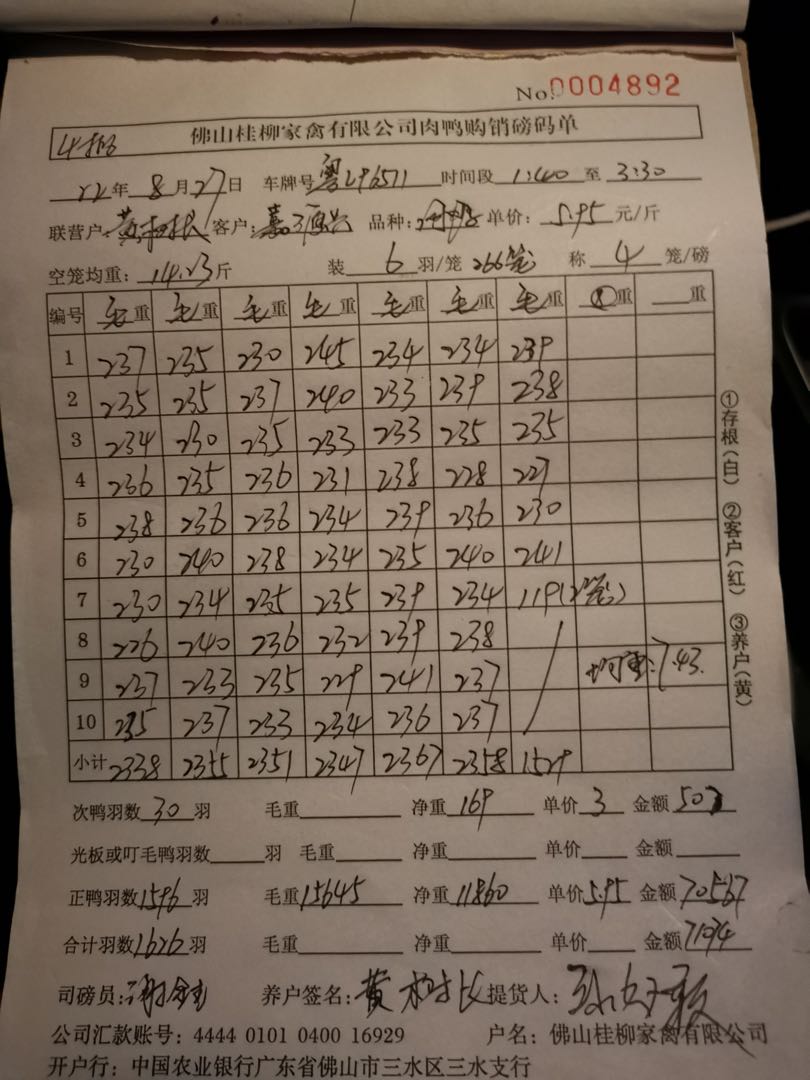 No.0004892
佛山桂柳家禽有限公司肉鸭购销磅码单
22年 8月27日 车牌号粤L96511 时间段 1:40 至 3:30
联营户:黄柏根 客户: 品种: 单价: 5.95 元/斤
空笼均重: 14.23斤 装 6 羽/笼 266笼 称 4 笼/磅
编号 毛重 毛重 毛重 毛重 毛重 毛重 毛重 重 重
1 237 235 230 245 234 234 239
2 235 235 237 240 233 239 238
3 234 230 235 233 233 235 235
4 236 235 236 231 238 228 227
5 238 236 236 234 239 236 230
6 230 240 238 234 235 240 241
7 230 234 235 235 239 234 119(2笼)
8 226 240 236 232 239 238
9 237 233 235 229 241 237 均重:7.43
10 235 237 233 234 236 237
小计 2338 2355 2351 2347 2367 2358 1529
次鸭羽数 30 羽 毛重 净重 169 单价 3 金额 507
光板或叮毛鸭羽数 羽 毛重 净重 单价 金额
正鸭羽数1596羽 毛重15645 净重11860 单价5.95 金额70567
合计羽数1626羽 毛重 净重 单价 金额71074
司磅员: 养户签名:黄柏长 提货人:
公司汇款账号: 4444 0101 0400 16929 户名: 佛山桂柳家禽有限公司
开户行: 中国农业银行广东省佛山市三水区三水支行
①存根(白) ②客户(红) ③养户(黄)